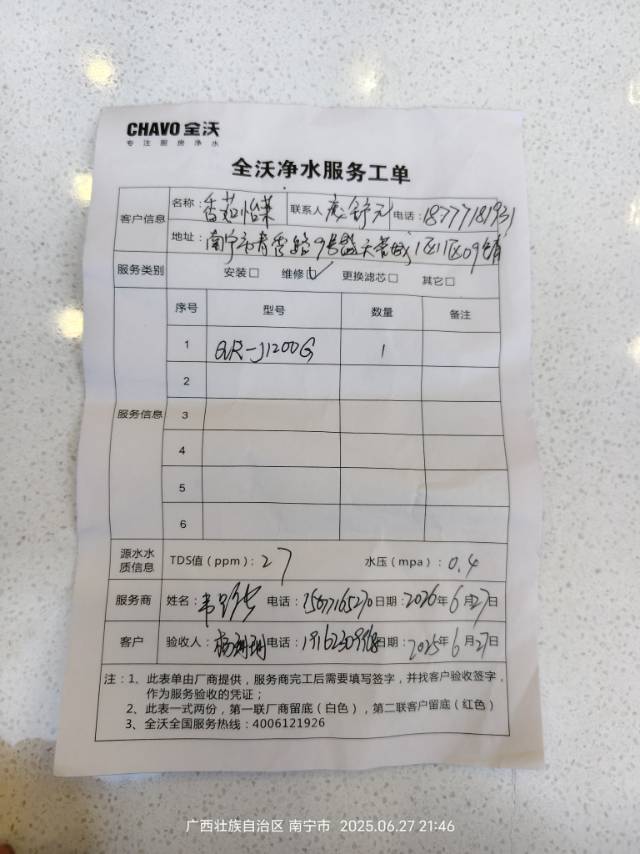 CHAVO 全沃
专 注 厨 房 净 水
全沃净水服务工单
客户信息 名称：香茹怡莱 联系人 电话：18777181931
地址：南宁市青秀路9号 1区1区09铺
服务类别 安装□ 维修☑ 更换滤芯□ 其它□
服务信息
序号 型号 数量 备注
1 QR-J1200G 1
2
3
4
5
6
源水水质信息 TDS值（ppm）：27 水压（mpa）：0.4
服务商 姓名：韦 电话：15677165270 日期：2026年6月27日
客户 验收人：杨 电话： 日期：2025年6月27日
注：1、此表单由厂商提供，服务商完工后需要填写签字，并找客户验收签字，
作为服务验收的凭证；
2、此表一式两份，第一联厂商留底（白色），第二联客户留底（红色）
3、全沃全国服务热线：4006121926
广西壮族自治区 南宁市 2025.06.27 21:46